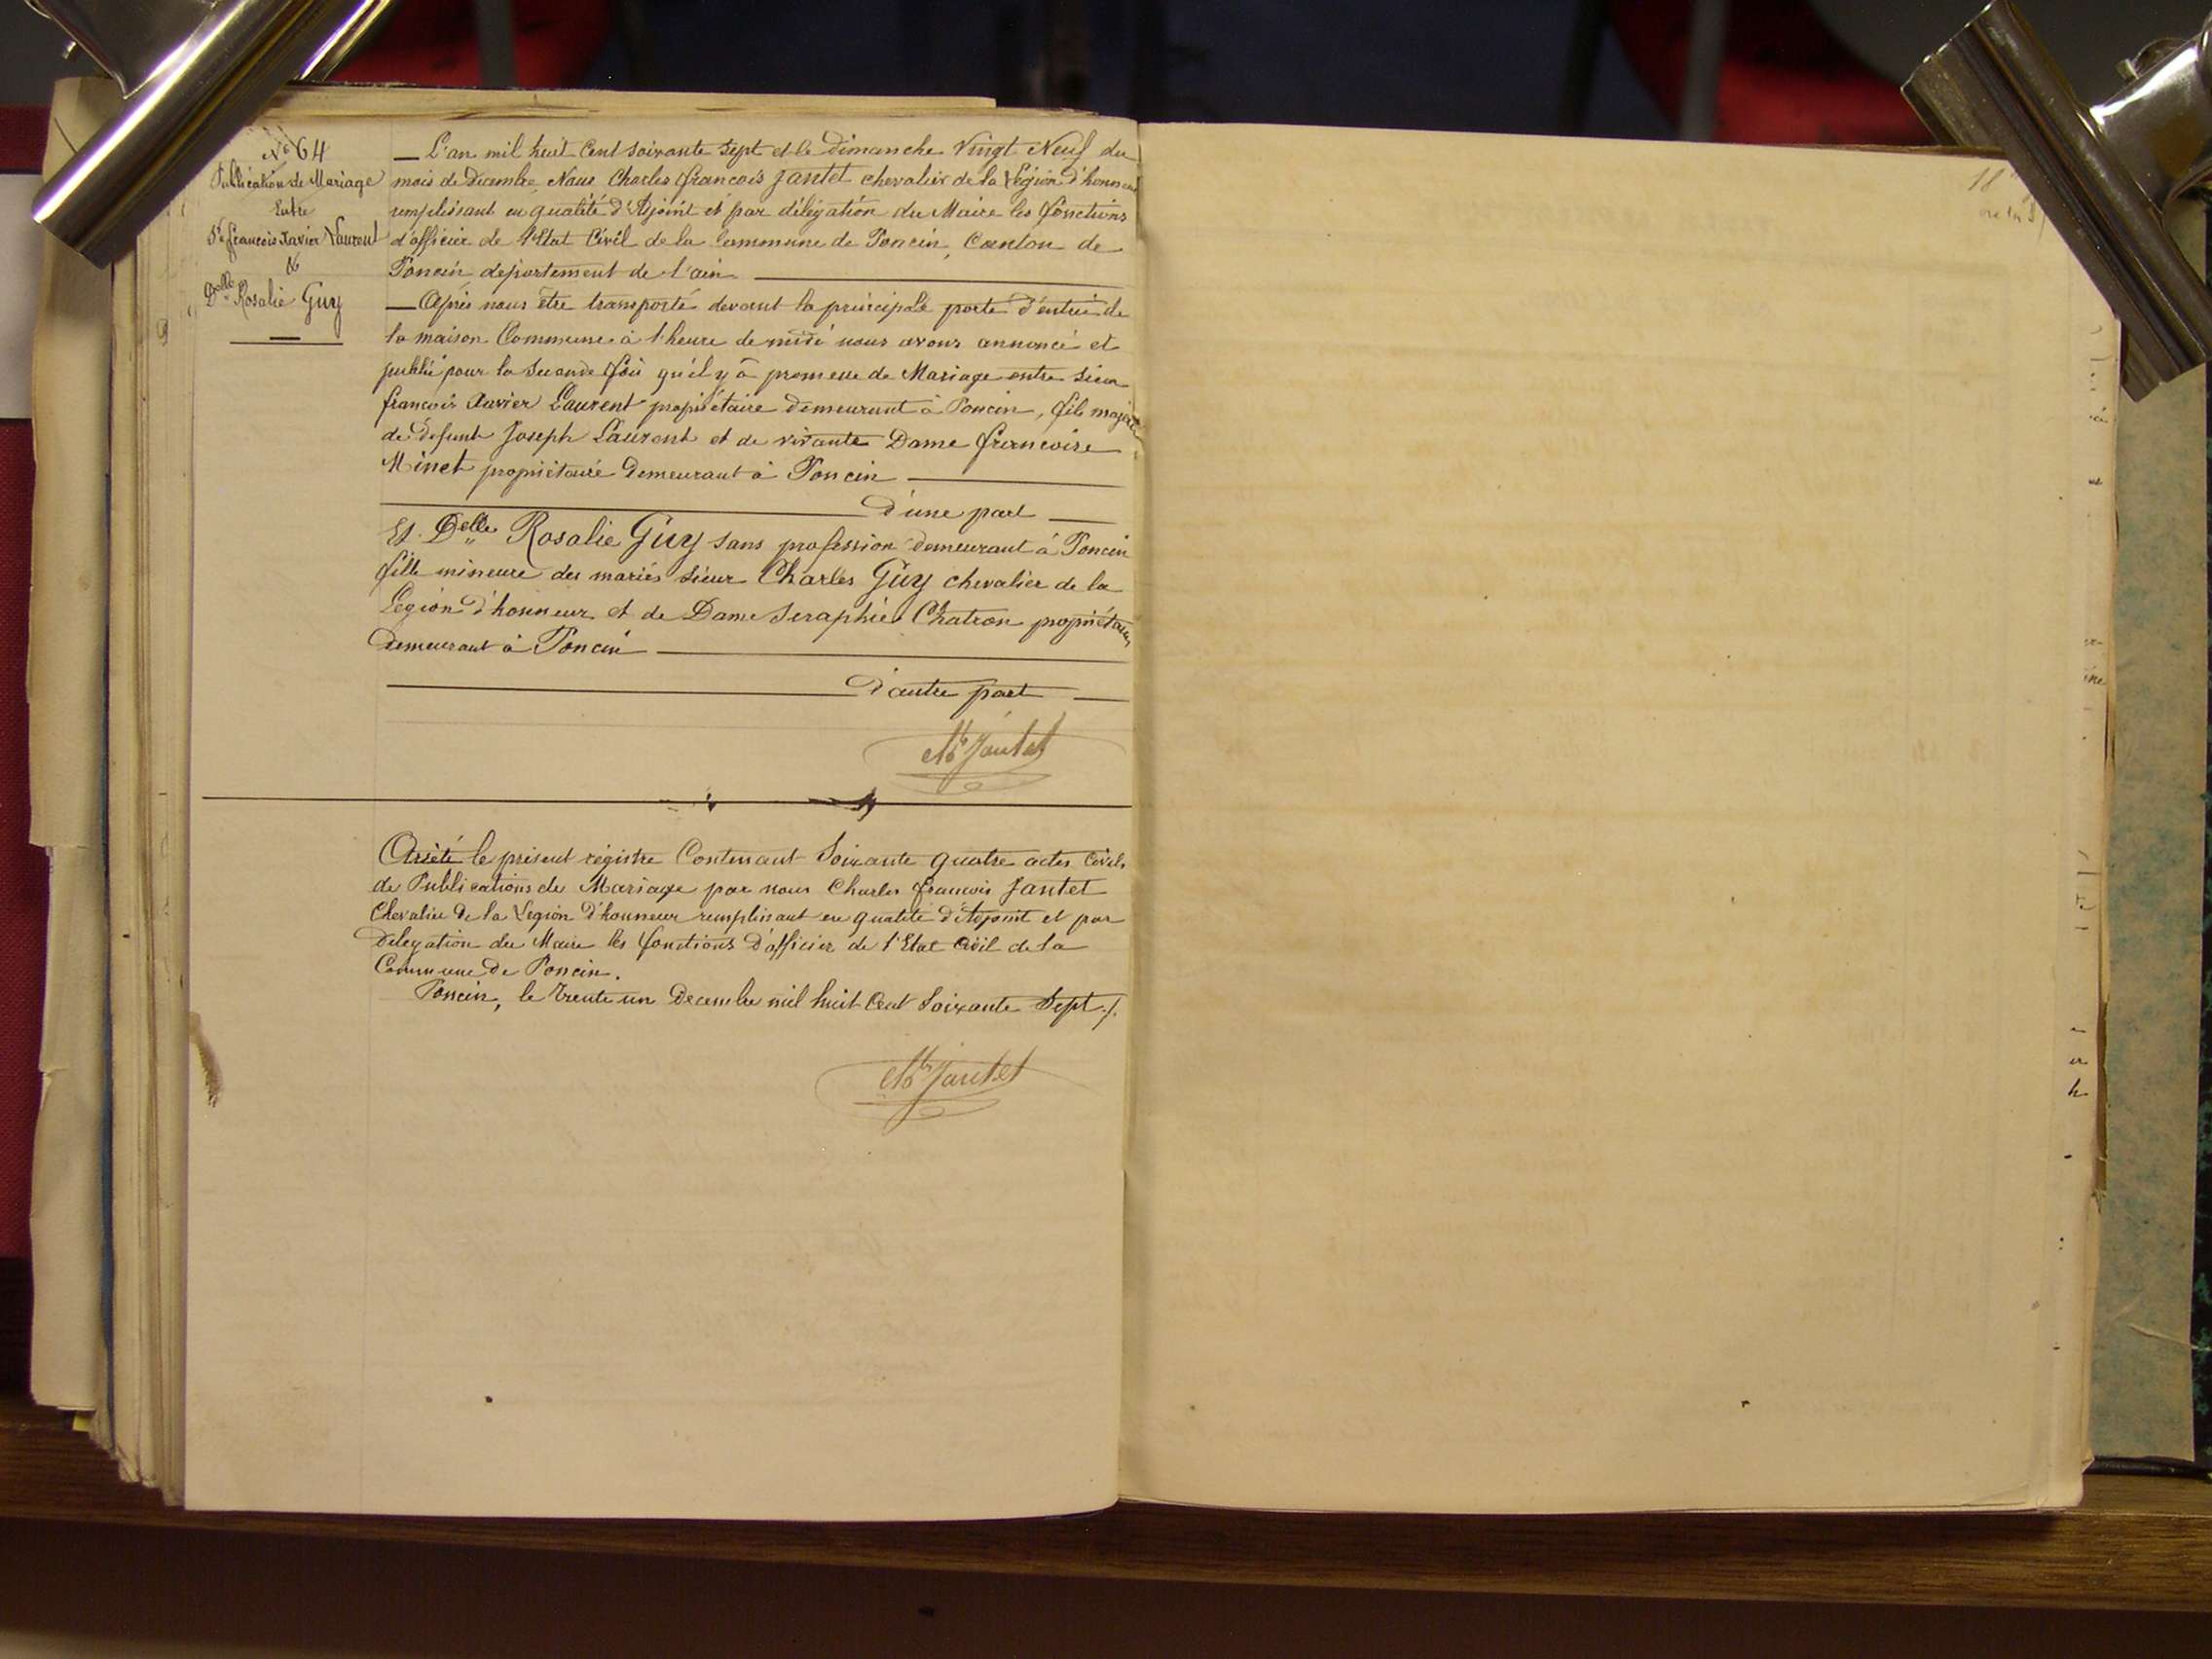 N° 64
Publication de Mariage
Entre
Sr francois Xavier Laurent
&
Delle Rosalie Guy
— L'an mil huit Cent soixante sept et le Dimanche Vingt Neuf du
mois de Decembre Nous Charles francois Jantet chevalier de la Légion d'honneur
remplissant en qualité d'Adjoint et par délégation du Maire les fonctions
d'officier de l'Etat Civil de la Commune de Poncin, Canton de
Poncin departement de l'ain
— Après nous être transporté devant la principale porte d'entrée de
la maison Commune à l'heure de midi nous avons annoncé et
publié pour la seconde fois qu'il y à promesse de Mariage entre sieur
francois Xavier Laurent propriétaire demeurant à Poncin, fils majeur
de defunt Joseph Laurent et de vivante Dame francoise
Minet propriétaire demeurant à Poncin
D'une part
Et Delle Rosalie Guy sans profession demeurant à Poncin
fille mineure des mariés sieur Charles Guy chevalier de la
Légion d'honneur et de Dame Seraphie Chatron propriétaires
demeurant à Poncin
D'autre part
Chs Jantet
Arrêté le présent régistre Contenant Soixante quatre actes Civils
de Publications de Mariage par nous Charles francois Jantet
Chevalier de la Légion d'honneur remplissant en qualité d'Adjoint et par
Délégation du Maire les fonctions d'officier de l'Etat Civil de la
Commune de Poncin.
Poncin, le Trente un Decembre mil huit Cent Soixante Sept ./.
Chs Jantet